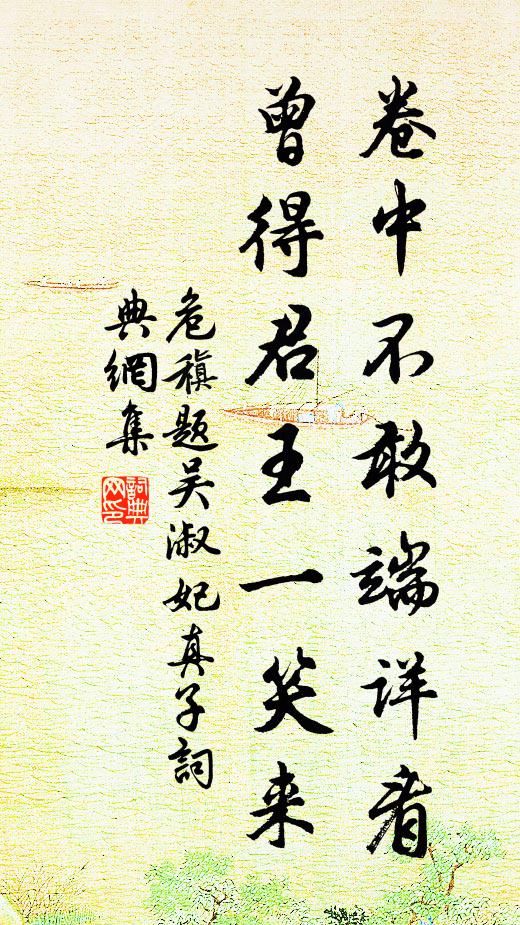 卷中不敢端详看
曾得君王一笑来
危稹题吴淑妃真子詞
典網集
詞典网印